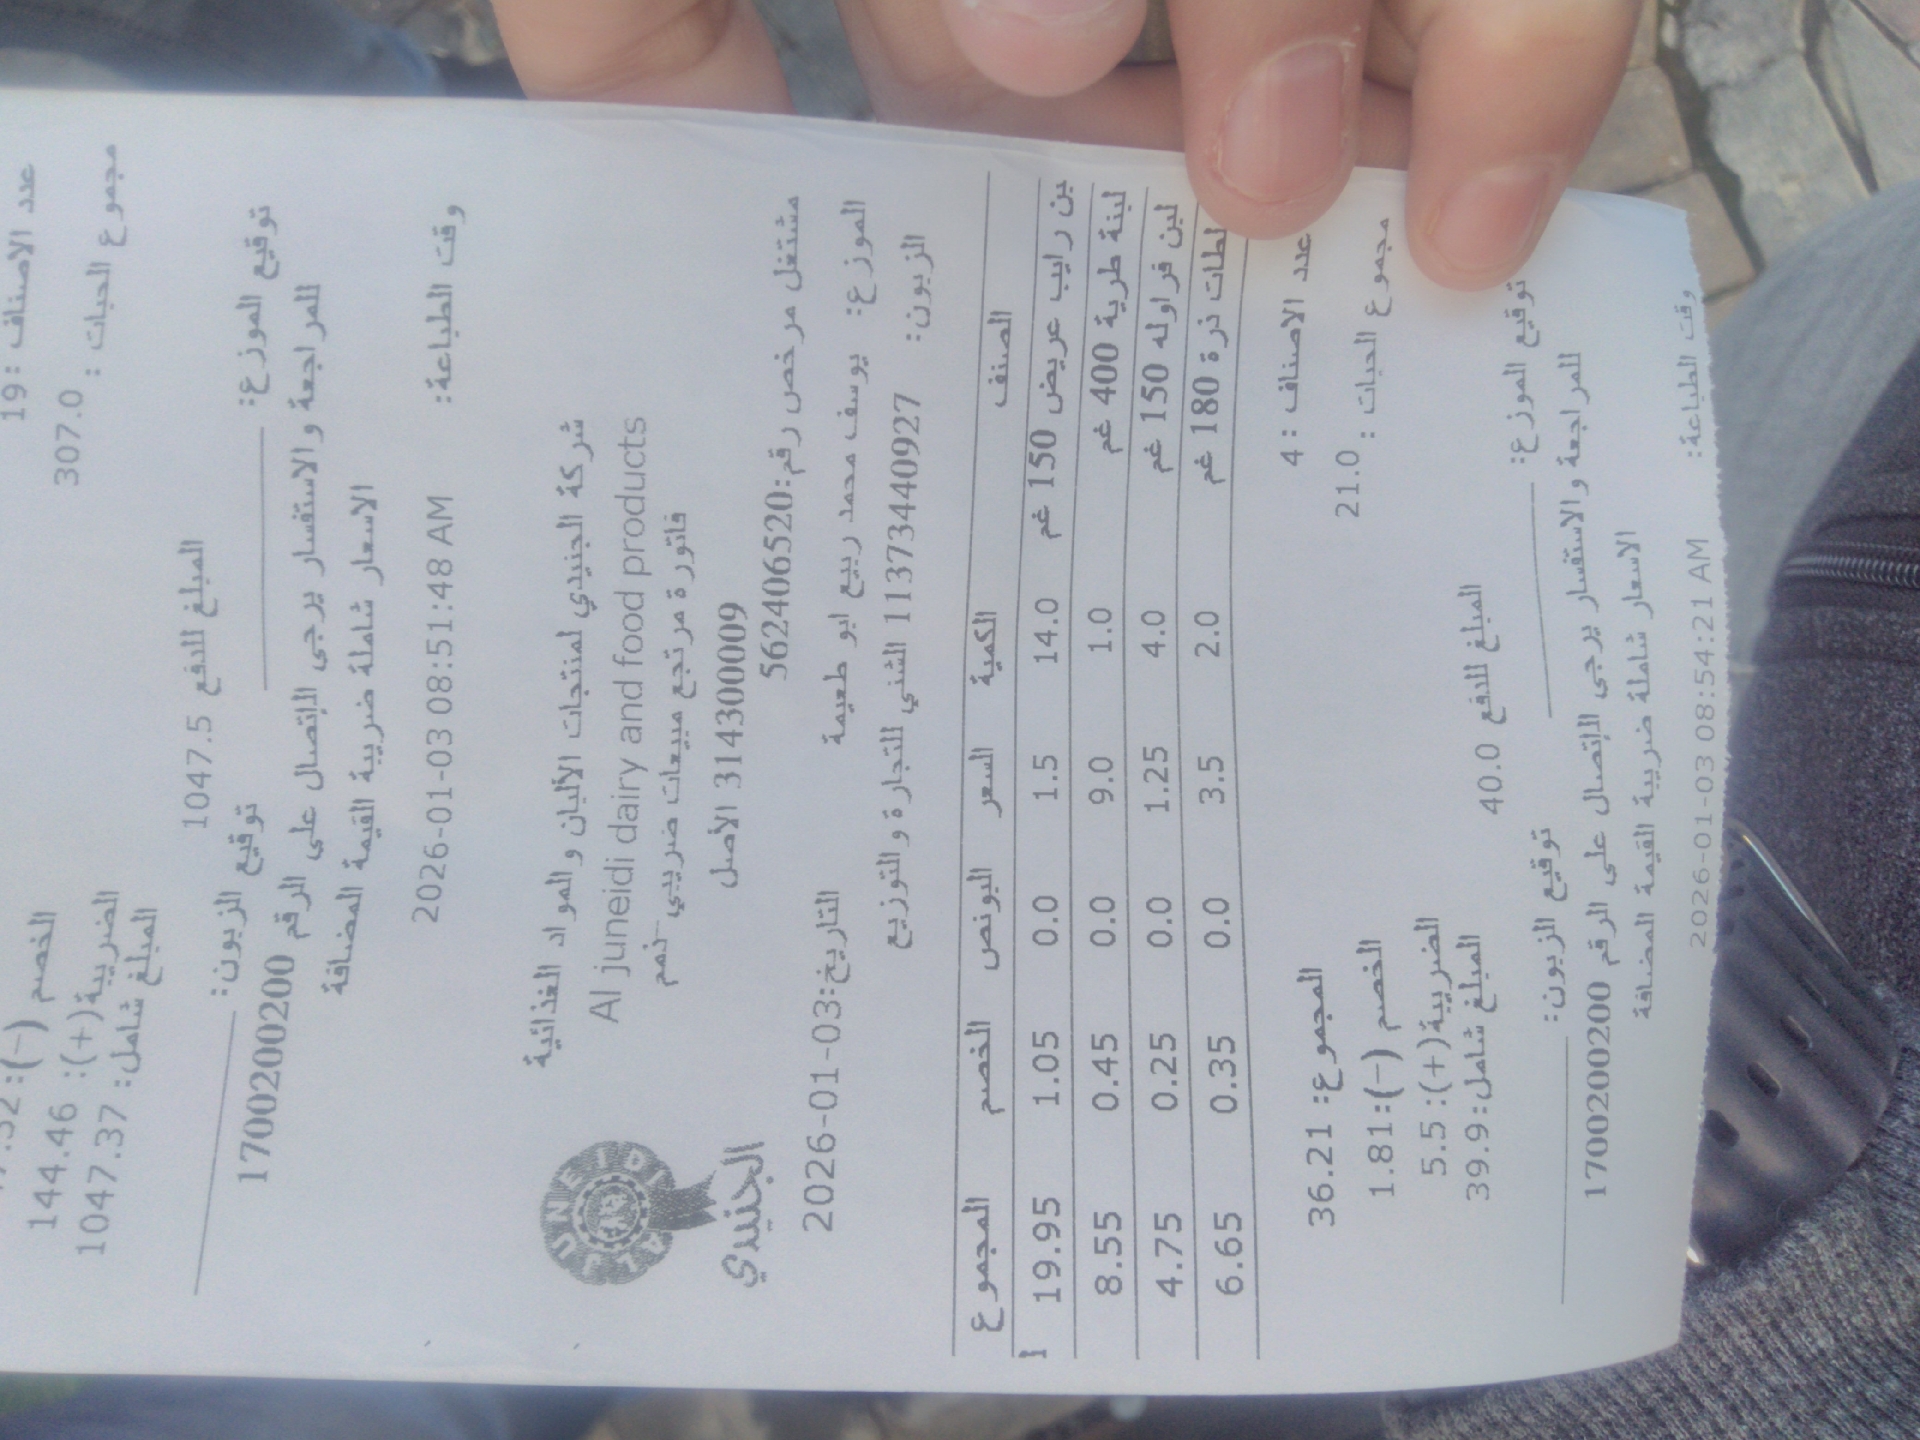 عدد الاصناف : 19
مجموع الحبات : 307.0
الخصم (-):
الضريبة(+): 144.46
المبلغ شامل: 1047.37
المبلغ للدفع 1047.5
توقيع الموزع: توقيع الزبون:
للمراجعة والاستفسار يرجى الإتصال على الرقم 1700200200
الاسعار شاملة ضريبة القيمة المضافة
وقت الطباعة: 2026-01-03 08:51:48 AM
شركة الجنيدي لمنتجات الألبان والمواد الغذائية
Al juneidi dairy and food products
فاتورة مرتجع مبيعات ضريبي
314300009 الأصل
مشتغل مرخص رقم:562406520
AL JUNEIDI
الجنيدي
الموزع: يوسف محمد ربيع ابو طعيمة
التاريخ:2026-01-03
الزبون: 1137340927 الشني للتجارة والتوزيع
الصنف الكمية السعر البونص الخصم المجموع
رايب عريض 150 غم 14.0 1.5 0.0 1.05 19.95
لبنة طرية 400 غم 1.0 9.0 0.0 0.45 8.55
لبن فراوله 150 غم 4.0 1.25 0.0 0.25 4.75
ذرة 180 غم 2.0 3.5 0.0 0.35 6.65
عدد الاصناف : 4
مجموع الحبات : 21.0
المجموع: 36.21
الخصم (-): 1.81
الضريبة(+): 5.5
المبلغ شامل: 39.9
المبلغ للدفع 40.0
توقيع الموزع: توقيع الزبون:
للمراجعة والاستفسار يرجى الإتصال على الرقم 1700200200
الاسعار شاملة ضريبة القيمة المضافة
وقت الطباعة: 2026-01-03 08:54:21 AM